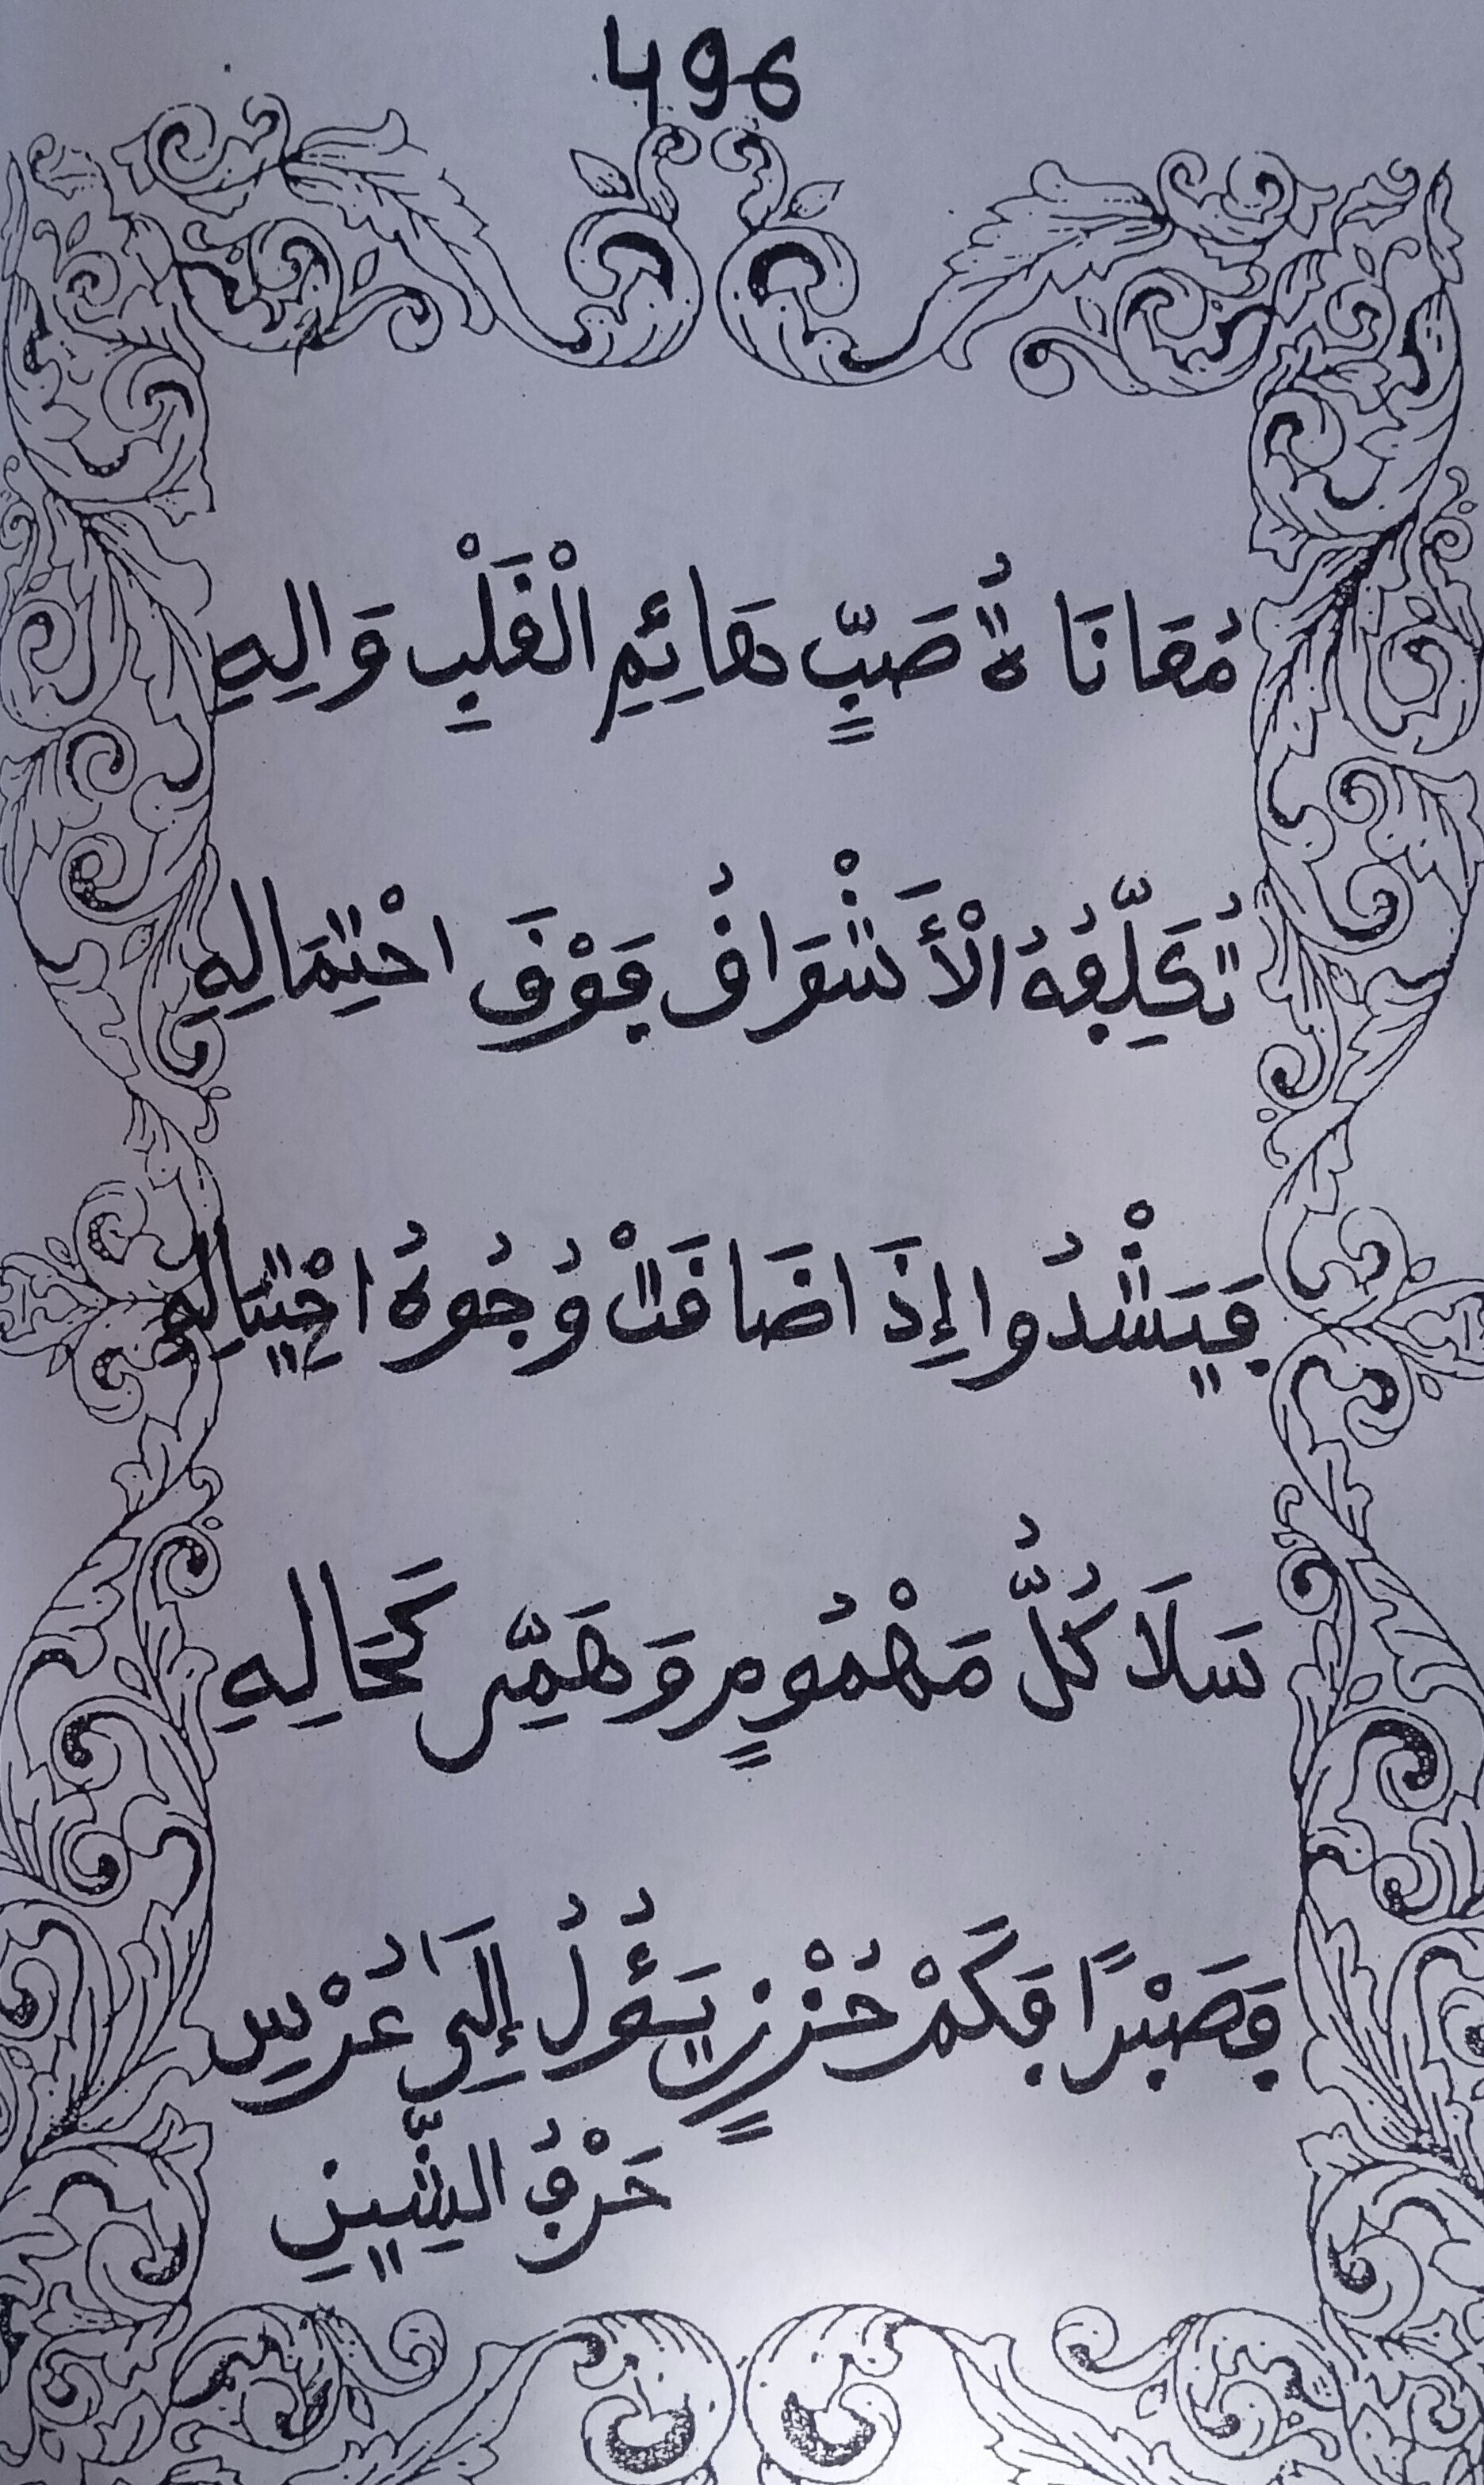 496
مُعَانَاةُ صَبٍّ هَائِمِ الْقَلْبِ وَالِهِ
تُكَلِّفُهُ الْأَشْوَاقُ فَوْقَ احْتِمَالِهِ
فَيَشْدُوا إِذَا ضَاقَتْ وُجُوهُ احْتِيَالِهِ
سَلَا كُلُّ مَهْمُومٍ وَهَمِّي كَحَالِهِ
فَصَبْرًا فَكَمْ حُزْنٍ يَئُولُ إِلَى عُرْسِ
حَرْفُ الشِّينِ